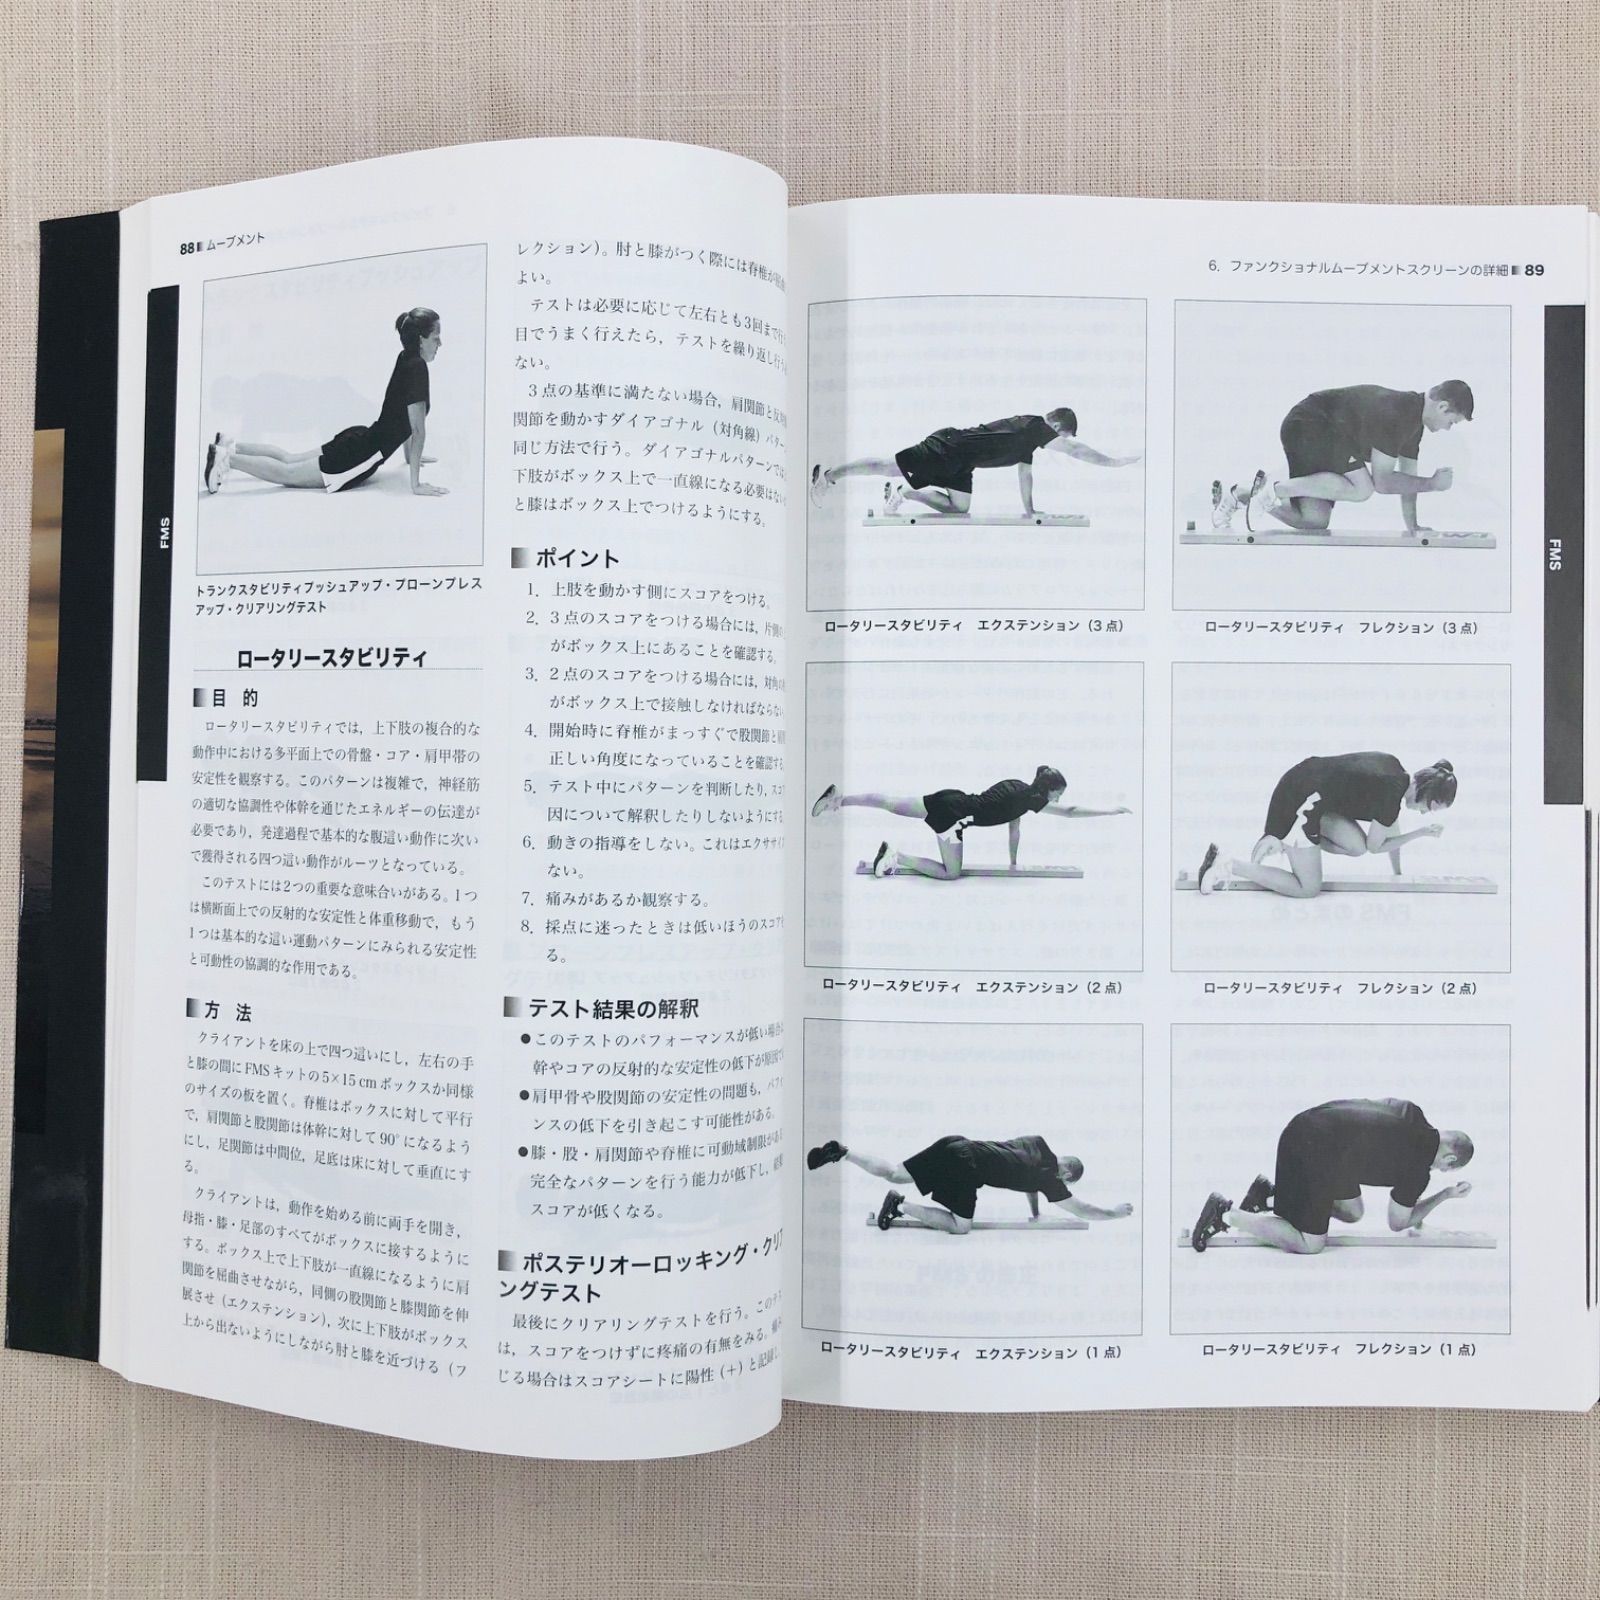 88 ムーブメント
FMS
トランクスタビリティプッシュアップ・プローンプレス
アップ・クリアリングテスト
ロータリースタビリティ
目 的
ロータリースタビリティでは，上下肢の複合的な
動作中における多平面上での骨盤・コア・肩甲帯の
安定性を観察する。このパターンは複雑で，神経筋
の適切な協調性や体幹を通じたエネルギーの伝達が
必要であり，発達過程で基本的な腹這い動作に次い
で獲得される四つ這い動作がルーツとなっている。
このテストには2つの重要な意味合いがある。1つ
は横断面上での反射的な安定性と体重移動で，もう
1つは基本的な這い運動パターンにみられる安定性
と可動性の協調的な作用である。
方 法
クライアントを床の上で四つ這いにし，左右の手
と膝の間にFMSキットの5×15 cmボックスか同様
のサイズの板を置く。脊椎はボックスに対して平行
で，肩関節と股関節は体幹に対して90°になるよう
にし，足関節は中間位，足底は床に対して垂直にす
る。
クライアントは，動作を始める前に両手を開き，
母指・膝・足部のすべてがボックスに接するように
する。ボックス上で上下肢が一直線になるように肩
関節を屈曲させながら，同側の股関節と膝関節を伸
展させ（エクステンション），次に上下肢がボックス
上から出ないようにしながら肘と膝を近づける（フ
レクション）。肘と膝がつく際には脊椎が
よい。
テストは必要に応じて左右とも3回まで行
目でうまく行えたら，テストを繰り返し行う
ない。
3点の基準に満たない場合，肩関節と反
関節を動かすダイアゴナル（対角線）パター
同じ方法で行う。ダイアゴナルパターンでは
下肢がボックス上で一直線になる必要はない
と膝はボックス上でつけるようにする。
ポイント
1. 上肢を動かす側にスコアをつける。
2. 3点のスコアをつける場合には，片側の
がボックス上にあることを確認する。
3. 2点のスコアをつける場合には，対角の
がボックス上で接触しなければならない
4. 開始時に脊椎がまっすぐで股関節と
正しい角度になっていることを確認する
5. テスト中にパターンを判断したり，スコ
因について解釈したりしないようにする
6. 動きの指導をしない。これはエクササイ
ない。
7. 痛みがあるか観察する。
8. 採点に迷ったときは低いほうのスコアを
る。
テスト結果の解釈
●このテストのパフォーマンスが低い場合
幹やコアの反射的な安定性の低下が原因
●肩甲骨や股関節の安定性の問題も，パフォ
ンスの低下を引き起こす可能性がある。
●膝・股・肩関節や脊椎に可動域制限がある
完全なパターンを行う能力が低下し，結果
スコアが低くなる。
ポステリオーロッキング・クリア
ングテスト
最後にクリアリングテストを行う。このテス
は，スコアをつけずに疼痛の有無をみる。
じる場合はスコアシートに陽性（+）と記録し
6. ファンクショナルムーブメントスクリーンの詳細 89
FMS
ロータリースタビリティ エクステンション（3点）
ロータリースタビリティ フレクション（3点）
ロータリースタビリティ エクステンション（2点）
ロータリースタビリティ フレクション（2点）
ロータリースタビリティ エクステンション（1点）
ロータリースタビリティ フレクション（1点）